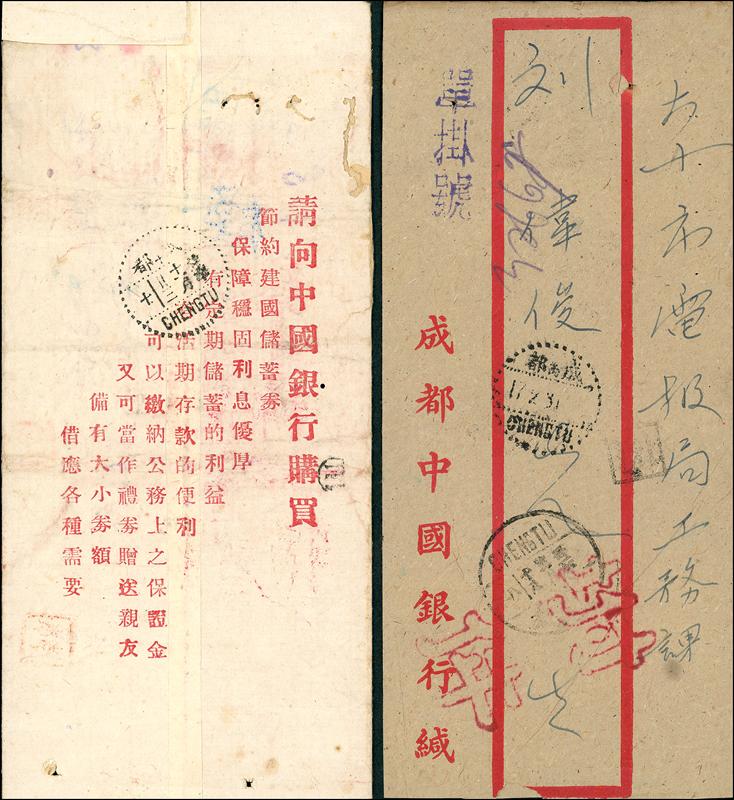 請向中國銀行購買
節約建國儲蓄券
保障穩固利息優厚
有定期儲蓄的利益
活期存款的便利
可以繳納公務上之保證金
又可當作禮券贈送親友
備有大小券額
借應各種需要
成都
CHENGTU
市電报局工務課
刘
俊
單掛號
成都
17.2.31
CHENGTU
CHENGTU
成都中國銀行緘